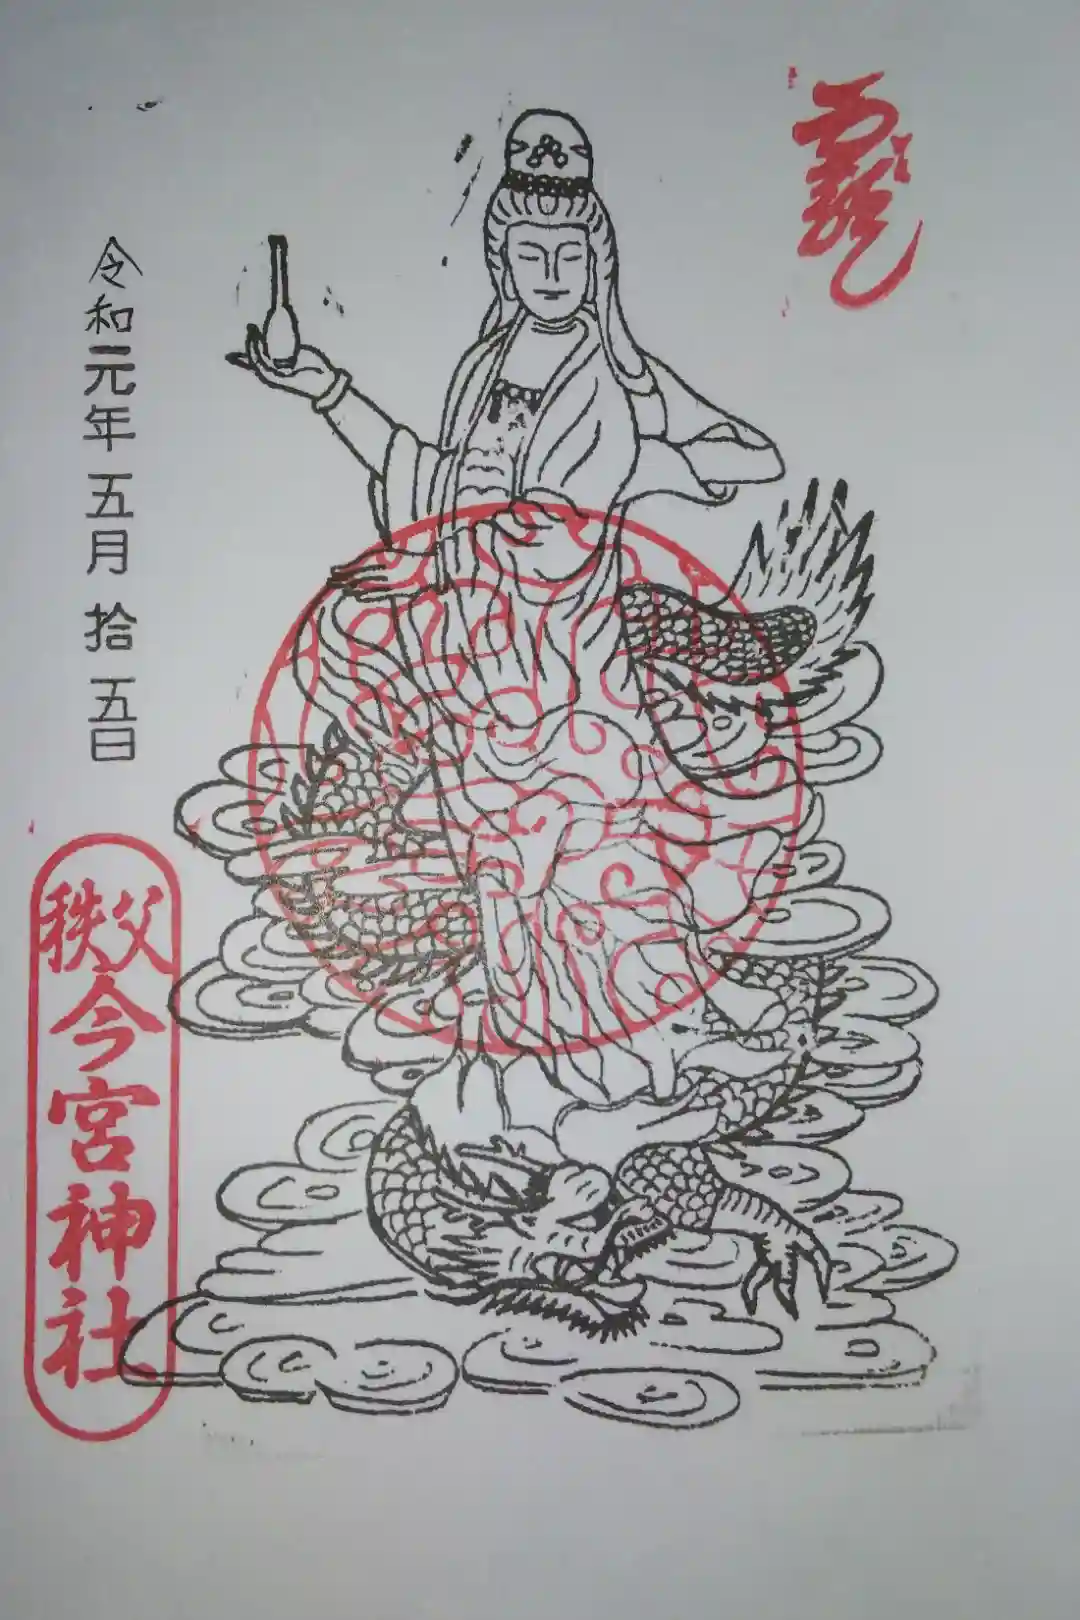 令和元年五月拾五日
秩父今宮神社